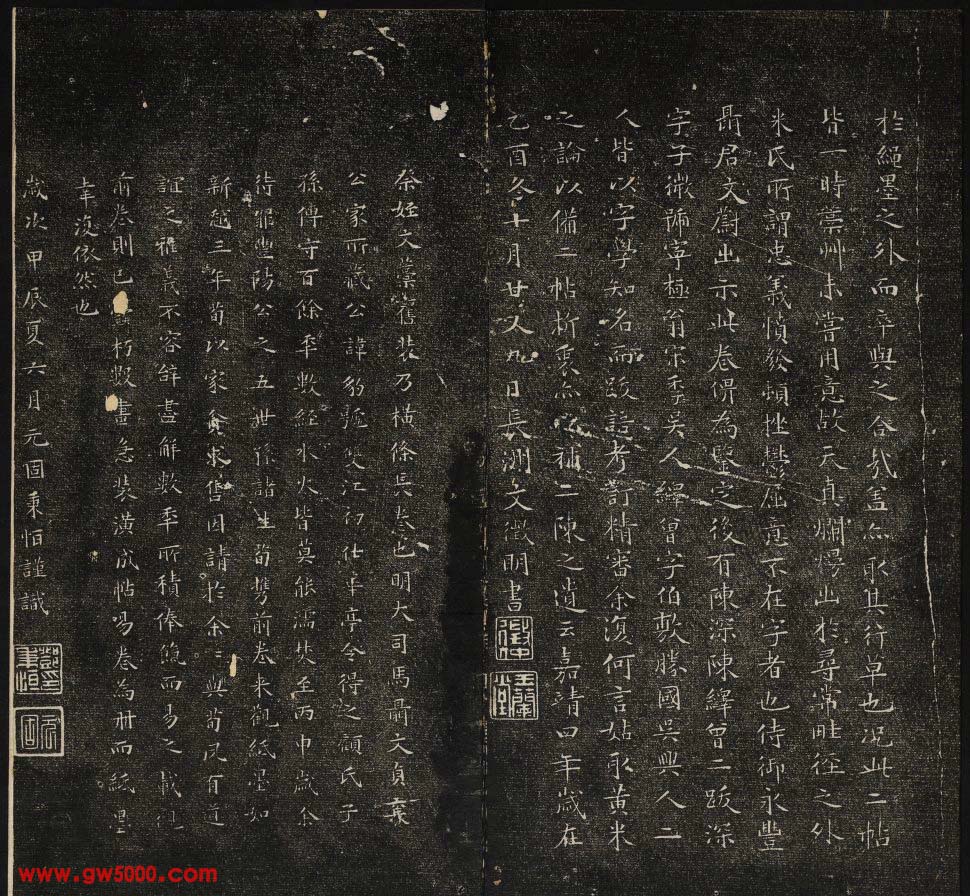 於繩墨之外而卒與之合哉盖亦取其行草也况此二帖
皆一時藁艸未嘗用意故天真爛慢出於尋常畦徑之外
米氏所謂忠義憤發頓挫鬱屈意不在字者也侍御永豐
聶君文蔚出示此卷俾為鑒定後有陳深陳繹曾二跋深
字子微號寧極翁宋季吴人繹曾字伯敷勝國吳興人二
人皆以字學知名而跋語考訂精審余復何言姑取黄米
之論以備二帖折衷亦以補二陳之遺云嘉靖四年歲在
乙酉冬十月廿又九日長洲文徵明書
祭姪文藁舊装乃横條長卷也明大司馬聶文貞襄
公家所藏公諱豹號雙江初仕華亭令得之顧氏子
孫傳守百餘年數經水火皆莫能濡焚至丙申歲余
待罪豐陽公之五世孫諸生荀携前卷来觀紙墨如
新越三年荀以家貧求售因請於余二與荀夙有道
誼之雅義不容辭盡解數年所積俸餼而易之載
前卷則已朽數畫急装潢成帖易卷為册而紙墨
幸復依然也
歲次甲辰夏六月元固秉恒謹識
玉蘭堂
www.gw5000.com